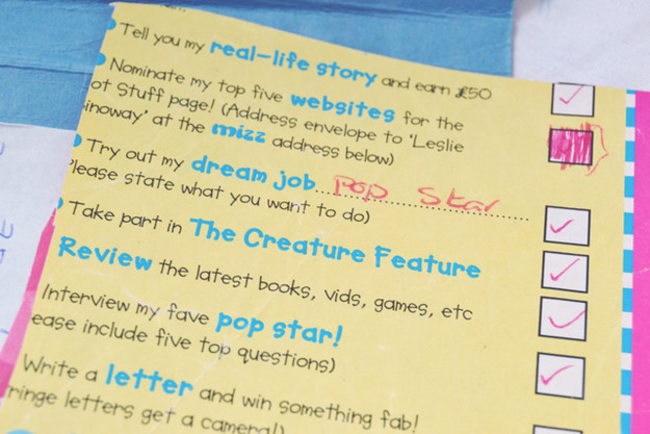 Tell you my real-life story and earn £50
Nominate my top five websites for the
ot Stuff page! (Address envelope to 'Leslie
inoway' at the mizz address below)
Try out my dream job.... Pop Star
lease state what you want to do)
Take part in The Creature Feature
Review the latest books, vids, games, etc
Interview my fave pop star!
ease include five top questions)
Write a letter and win something fab!
ringe letters get a camera!)